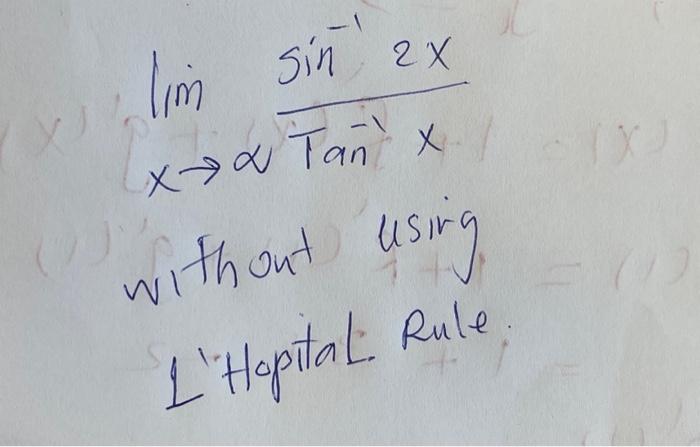 lim sin⁻¹ 2x
x→∝ Tan⁻¹ x
without using
L'Hopital Rule.